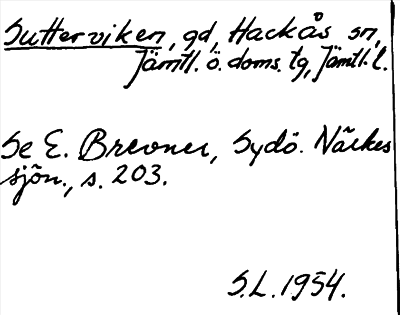 Sutterviken, gd, Hackås sn,
Jämtl. ö. doms. tg, Jämtl. l.
Se E. Brevner, Sydö. Närkes
sjön., s. 203.
S.L. 1954.